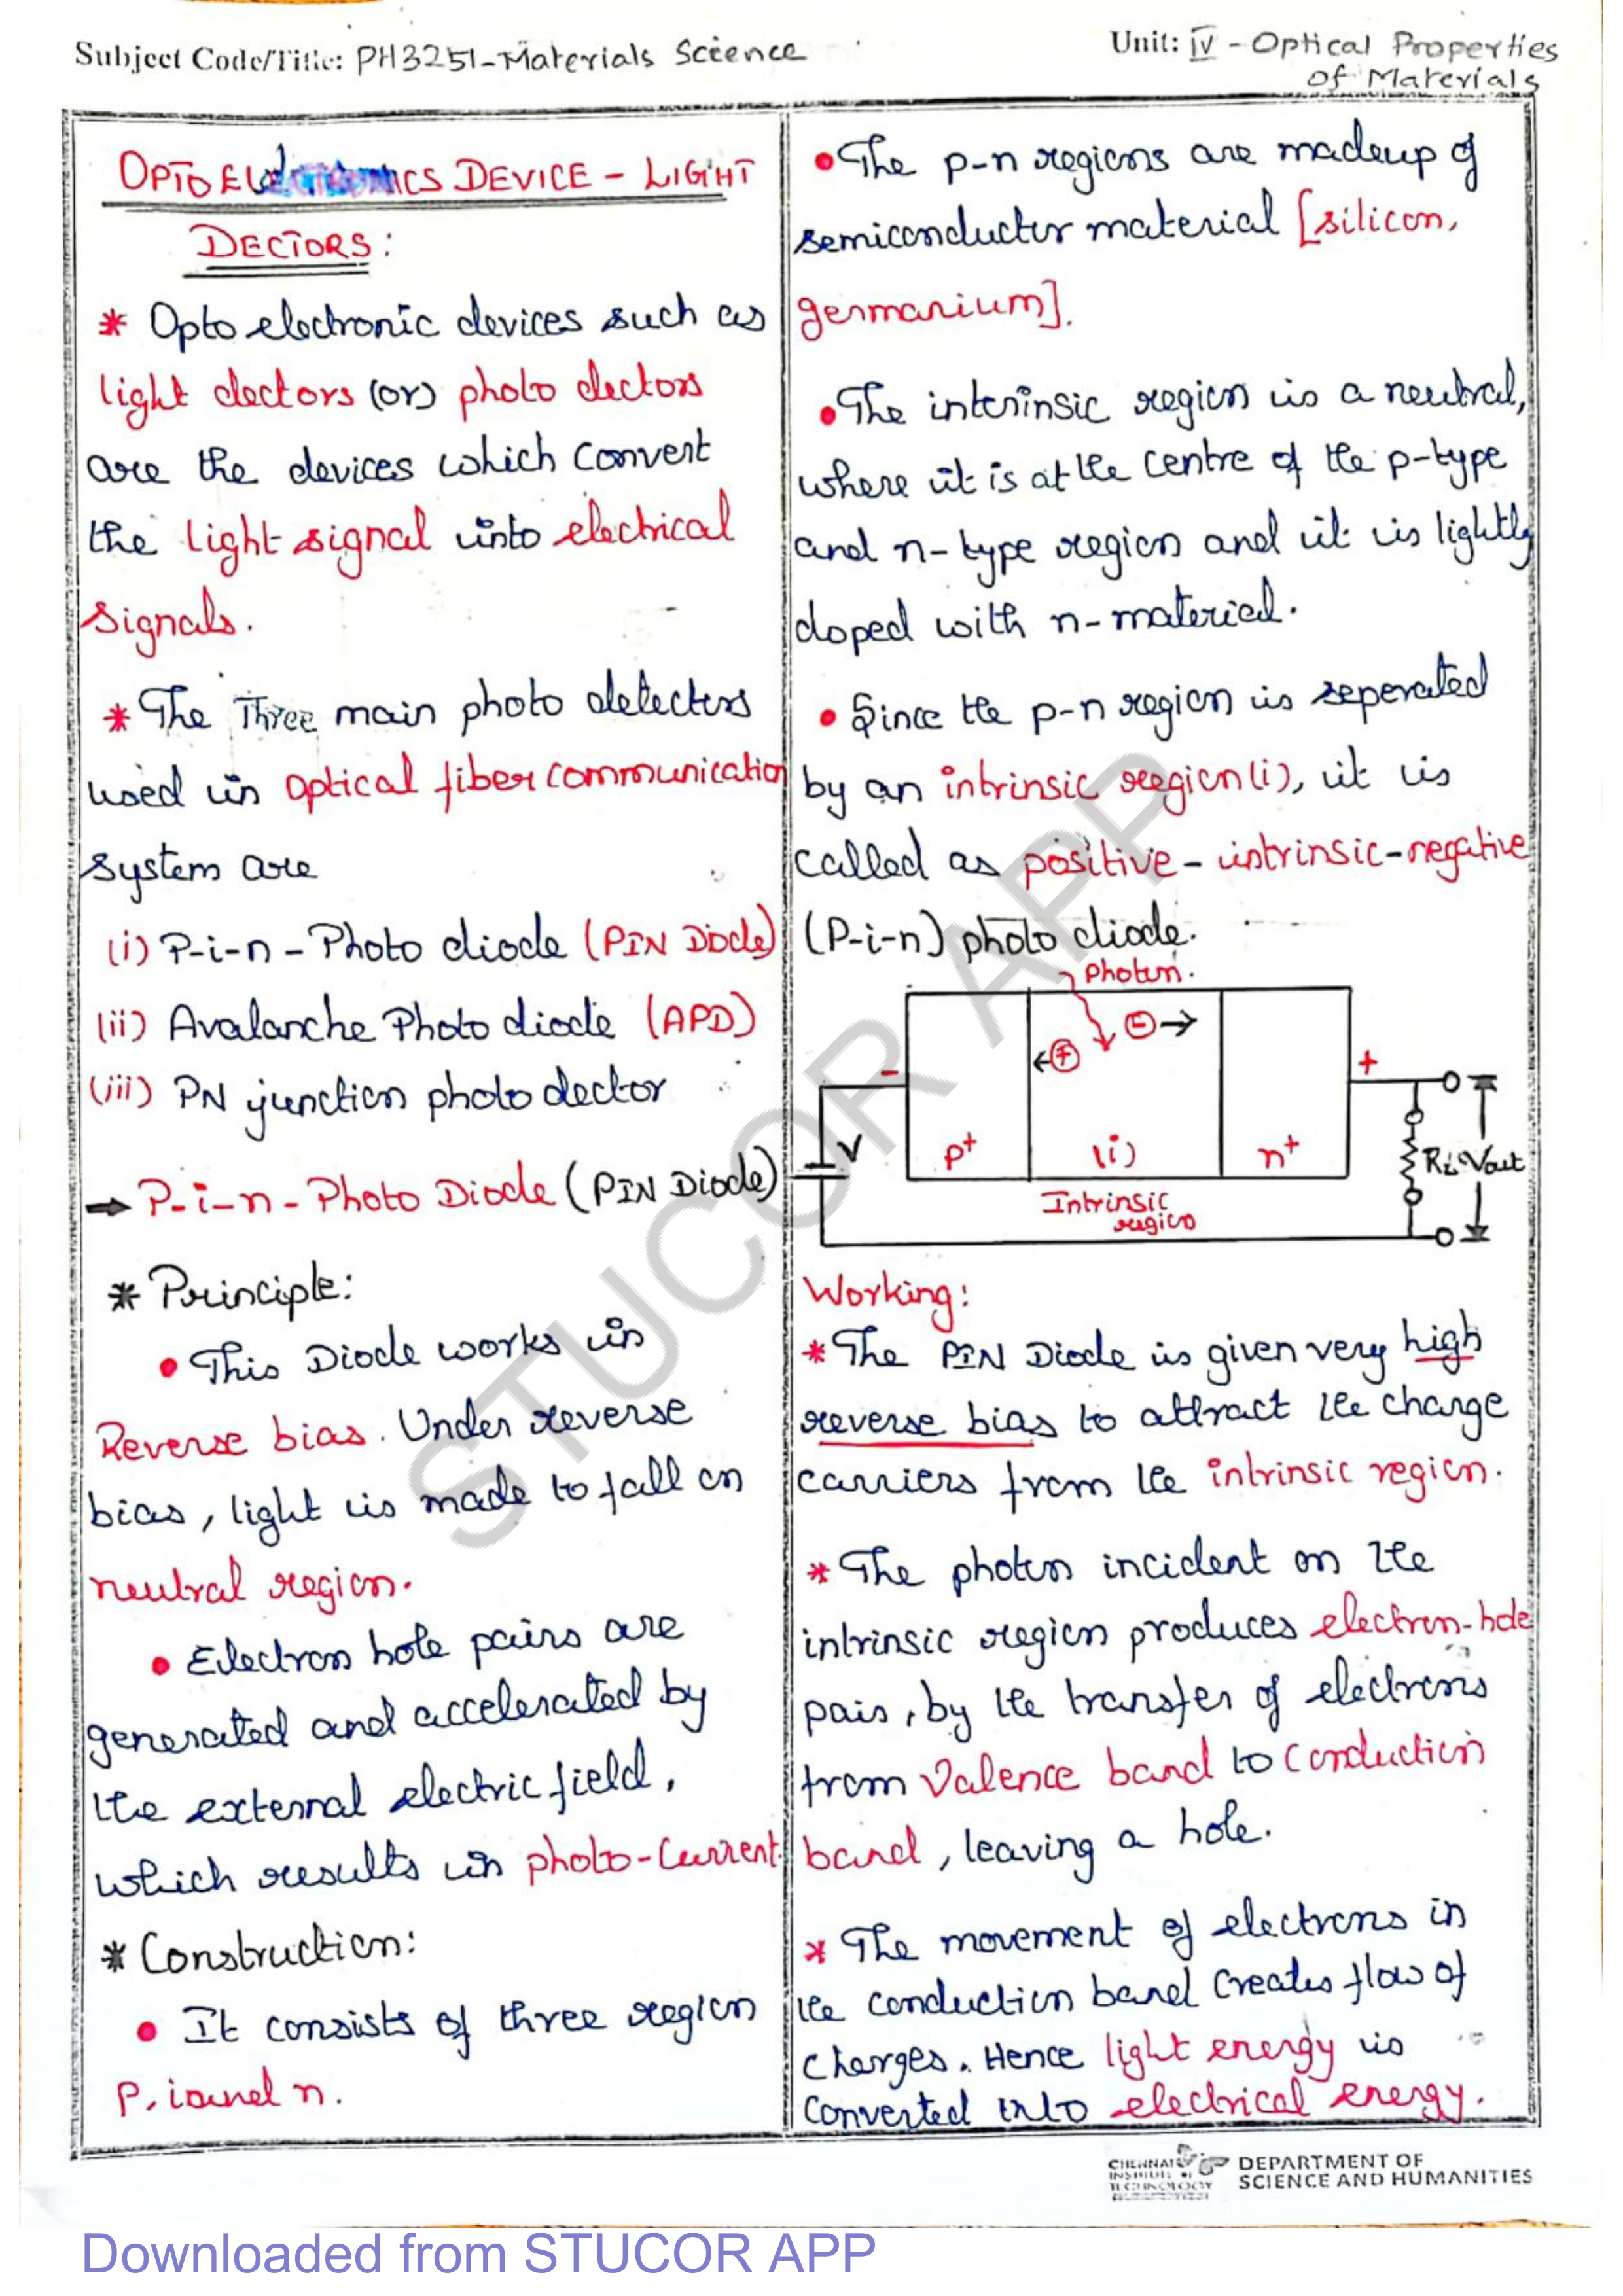 Subject Code/Title: PH3251-Materials Science
Unit: IV - Optical Properties
of Materials
OPTO ELECTRONICS DEVICE - LIGHT
DECTORS:
* Opto electronic devices such as
light dectors (or) photo dectors
are the devices which convert
the light signal into electrical
signals.
* The Three main photo detectors
used in optical fiber communication
system are
(i) P-i-n - Photo diode (PIN Diode)
(ii) Avalanche Photo diode (APD)
(iii) PN junction photo dector
→ P-i-n - Photo Diode (PIN Diode)
* Principle:
• This Diode works in
Reverse bias. Under reverse
bias, light is made to fall on
neutral region.
• Electron hole pairs are
generated and accelerated by
the external electric field,
which results in photo-current.
* Construction:
• It consists of three region
P, i and n.
• The p-n regions are madeup of
semiconductor material [silicon,
germanium].
• The interinsic region is a neutral,
where it is at the centre of the p-type
and n-type region and it is lightly
doped with n-material.
• Since the p-n region is seperated
by an intrinsic region (i), it is
called as positive - intrinsic - negative
(P-i-n) photo diode.
Photon.
- +
V
p+ (i) n+
RL Vout
Intrinsic
region
Working:
* The PIN Diode is given very high
reverse bias to attract the charge
carriers from the intrinsic region.
* The photon incident on the
intrinsic region produces electron-hole
pair, by the transfer of electrons
from Valence band to conduction
band, leaving a hole.
* The movement of electrons in
the conduction band creates flow of
charges. Hence light energy is
converted into electrical energy.
CHENNAI
INSTITUTE OF
TECHNOLOGY
DEPARTMENT OF
SCIENCE AND HUMANITIES
STUCOR APP
Downloaded from STUCOR APP